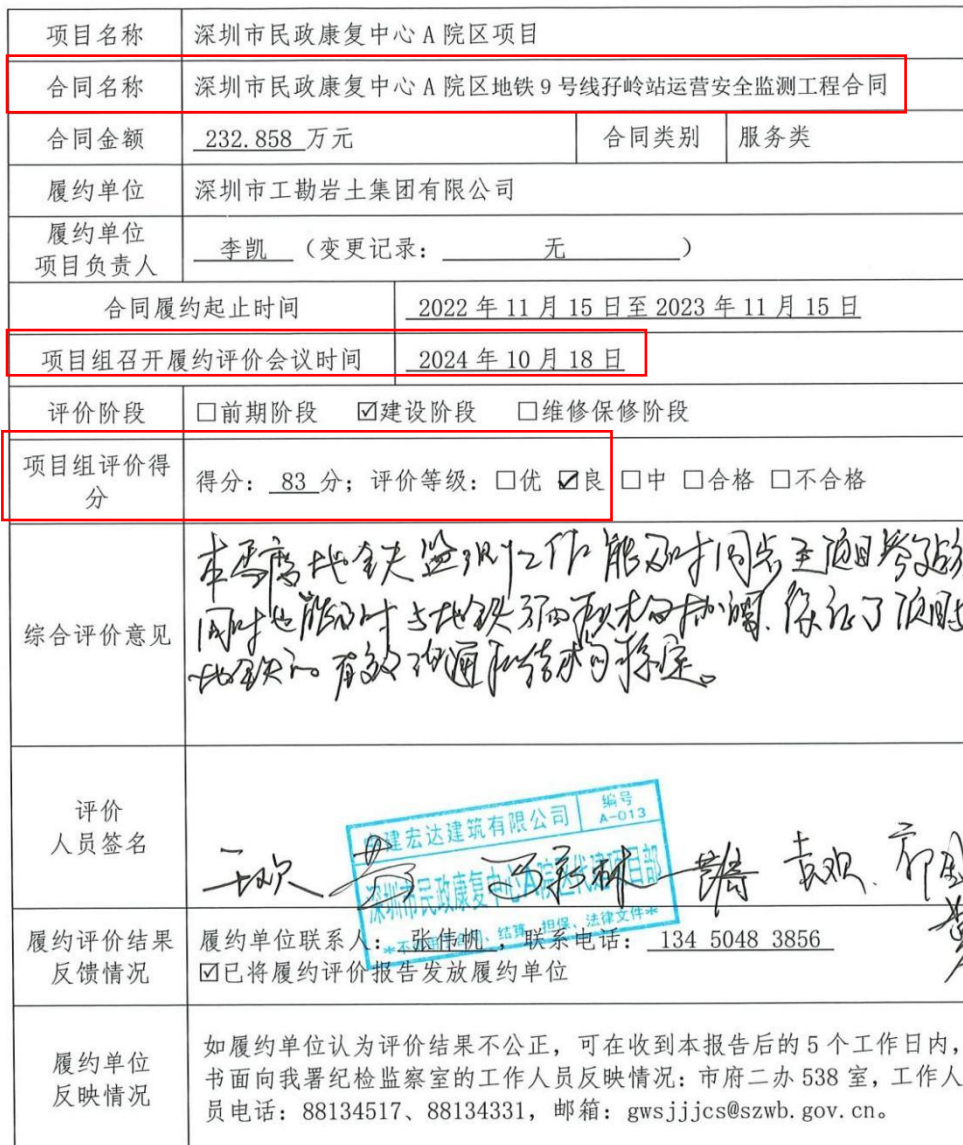 项目名称 深圳市民政康复中心 A 院区项目
合同名称 深圳市民政康复中心 A 院区地铁 9 号线孖岭站运营安全监测工程合同
合同金额 232.858 万元 合同类别 服务类
履约单位 深圳市工勘岩土集团有限公司
履约单位
项目负责人 李凯 （变更记录： 无 ）
合同履约起止时间 2022 年 11 月 15 日至 2023 年 11 月 15 日
项目组召开履约评价会议时间 2024 年 10 月 18 日
评价阶段 □前期阶段 ☑建设阶段 □维修保修阶段
项目组评价得
分 得分： 83 分；评价等级：□优 ☑良 □中 □合格 □不合格
综合评价意见
本季度地铁监测工作能及时
同时也能及时与地铁 保证了项目与
地铁的有效沟通和
评价
人员签名
建宏达建筑有限公司 编号
A-013
深圳市民政康复中心A院区代建项目部
结算、担保、法律文件*
王欢 袁欢
履约评价结果
反馈情况
履约单位联系人： 张伟帆 ，联系电话： 134 5048 3856
☑已将履约评价报告发放履约单位
履约单位
反映情况
如履约单位认为评价结果不公正，可在收到本报告后的 5 个工作日内，
书面向我署纪检监察室的工作人员反映情况：市府二办 538 室，工作人
员电话：88134517、88134331，邮箱：gwsjjjcs@szwb.gov.cn。